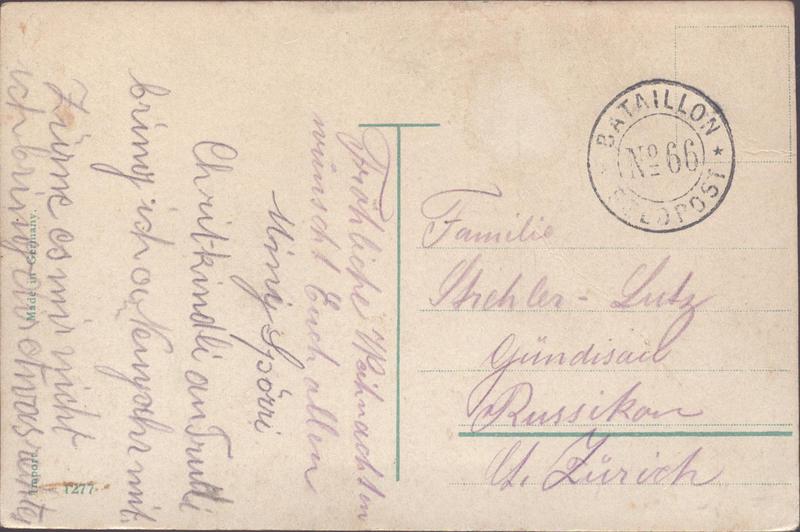 BATAILLON
No 66
FELDPOST
Familie
Strehler-Lutz
Gündisau
Russikon
Ct. Zürich
Fröhliche Weihnachten
wünscht Euch allen
Miny Spörri
Chritkindli an Trudi
bring ich a. Neujahr mit.
Zürne es mir nicht
ich bring dir etwas
Made in Germany.
Import.
1277